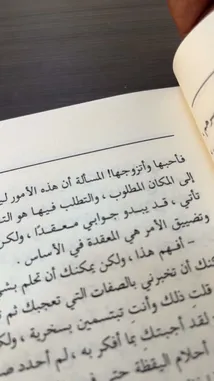 فأحبها وأتزوجها! المسألة أن هذه الأمور
إلى المكان المطلوب، والتطلب فيها هو
تأتي، قد يبدو جوابي معقدًا، ولكن
وتضييق الأمر هي المعقدة في الأساس.
- أفهم هذا، ولكن يمكنك أن تحلم
أن تخبرني بالصفات التي تعجبك ثم
قلت ذلك وأنت تبتسمين بسخرية،
لقد أجبتك بما أفكر به، لم أحدد
أحلام اليقظة حتى